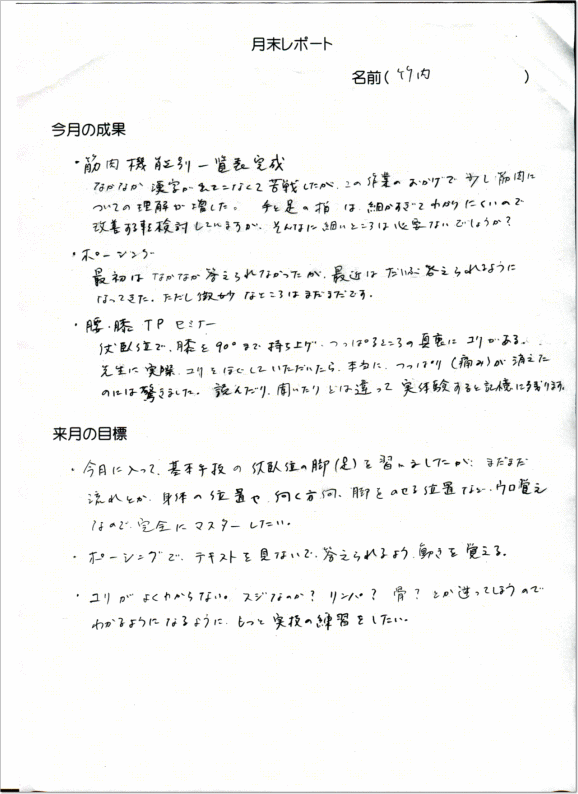 月末レポート
名前(竹内 )
今月の成果
・筋肉機能別一覧表完成
なかなか漢字が出てこなくて苦戦したが、この作業のおかげで少し筋肉に
ついての理解が増した。 手と足の指は、細かすぎてわかりにくいので
改善する事検討していますが、そんなに細いところは必要ないでしょうか?
・ポージング
最初はなかなか答えられなかったが、最近はだいぶ答えられるように
なってきた。ただし微妙なところはまだまだです。
・腰・膝TPセミナー
伏臥位で、膝を90°まで持ち上げ、つっぱるところの真裏にコリがある。
先生に実際、コリをほぐしていただいたら、本当に、つっぱり(痛み)が消えた
のには驚きました。読んだり、聞いたりとは違って実体験すると記憶に残ります。
来月の目標
・今月に入って、基本手技の伏臥位の脚(足)を習いましたが、まだまだ
流れとか、身体の位置や、向く方向、脚をのせる位置など、ウロ覚え
なので、完全にマスターしたい。
・ポージングで、テキストを見ないで、答えられるよう、動きを覚える。
・コリがよくわからない。スジなのか?リンパ?骨?とか迷ってしまうので
わかるようになるように、もっと実技の練習をしたい。